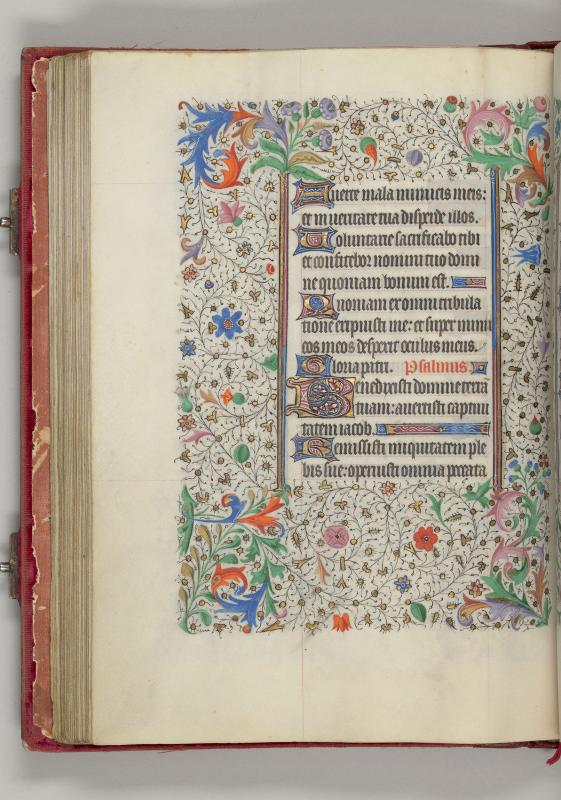 Auerte mala inimicis meis:
et in ueritate tua disperde illos.
Uoluntarie sacrificabo tibi
et confitebor nomini tuo domi
ne quoniam bonum est.
Quoniam ex omni tribula
tione eripuisti me: et super inimi
cos meos despexit oculus meus.
Gloria patri. Psalmus.
Benedixisti domine terrā
tuam: auertisti captiui
tatem iacob.
Remisisti iniquitatem ple
bis tue: operuisti omnia peccata